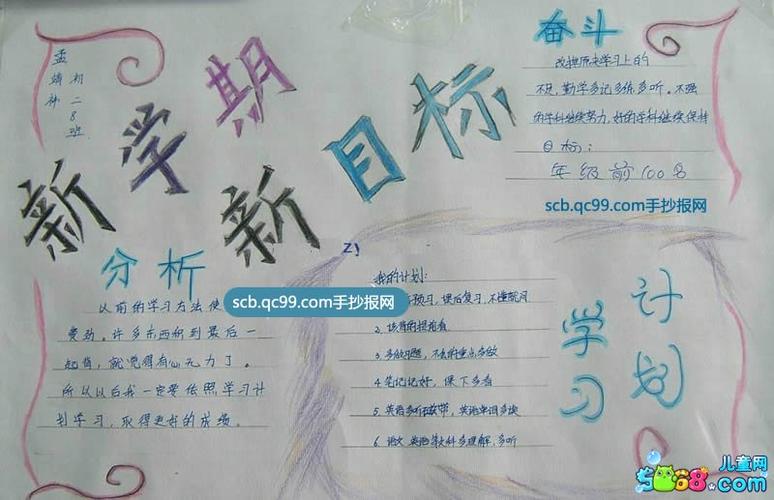 新学期
新目标
初二8班
孟
奋斗
改掉原来学习上的
不足,勤学多记多练多听。不强
的学科继续努力,好的学科继续保持
目标:
年级前100名
scb.qc99.com手抄报网
分析
以前的学习方法使
费劲。许多东西积到最后一
起背,就觉得有心无力了。
所以以后我一定要依照学习计
划学习,取得更好的成绩。
scb.qc99.com手抄报网
学习计划
我的计划:
预习,课后复习,不懂就问
2、该背的提前背
3、多做习题,不会的重点多做
4、笔记记好,课下多看
5、英语多听磁带,英语单词多读
6、语文英语等文科多理解,多听
儿童网
5068.com